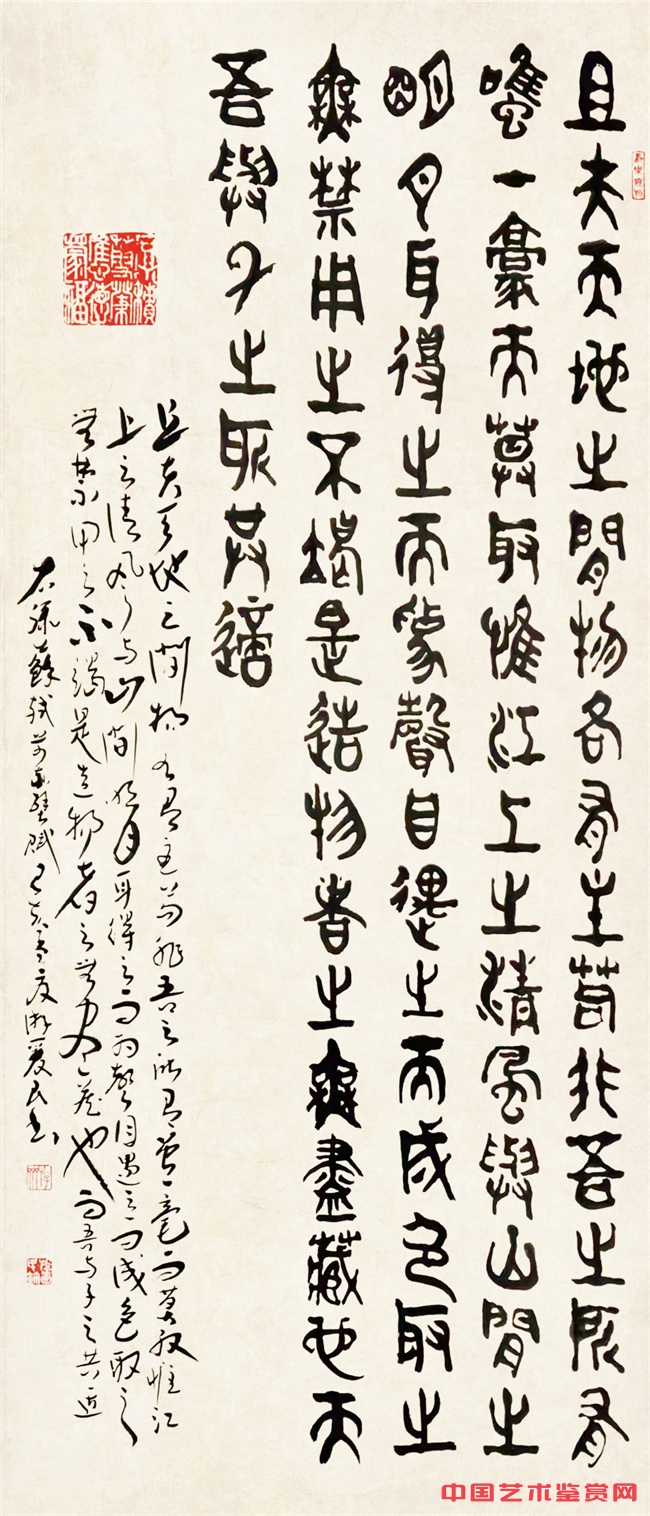 且夫天地之間物各有主苟非吾之所有
雖一豪而莫取惟江上之清風與山間之
明月耳得之而為聲目遇之而成色取之
無禁用之不竭是造物者之無盡藏也而
吾與子之所共適
且夫天地之間物各有主苟非吾之所有雖一毫而莫取惟江
上之清風与山間明月耳得之而為聲目遇之而成色取之
無禁用之不竭是造物者之無盡藏也而吾与子之共適
右录蘇軾前赤壁賦己亥夏民书
中国艺术鉴赏网